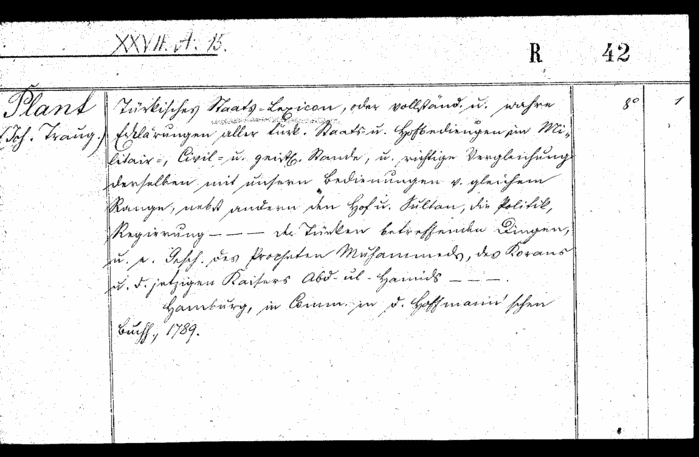 XXVII. A. 15.
R 42
Plant
(Joh. Traug.)
Türkisches Staats-Lexicon, oder vollständ. u. wahre 8° 1
Erklärungen aller türk. Staats u. Hofbedienungen, im Mi-
litair-, Civil- u. geistl. Stande, u. richtige Vergleichung
derselben mit unsern Bedienungen v. gleichem
Range, nebst andern den Hof u. Sultan, die Politik,
Regierung — — — der Türken betreffenden Dingen,
u. e. Gesch. des Propheten Muhammeds, des Korans
u. d. jetzigen Kaisers Abd-ul-Hamids — — —.
Hamburg, in Comm. in d. Hoffmann'schen
Buchh., 1789.